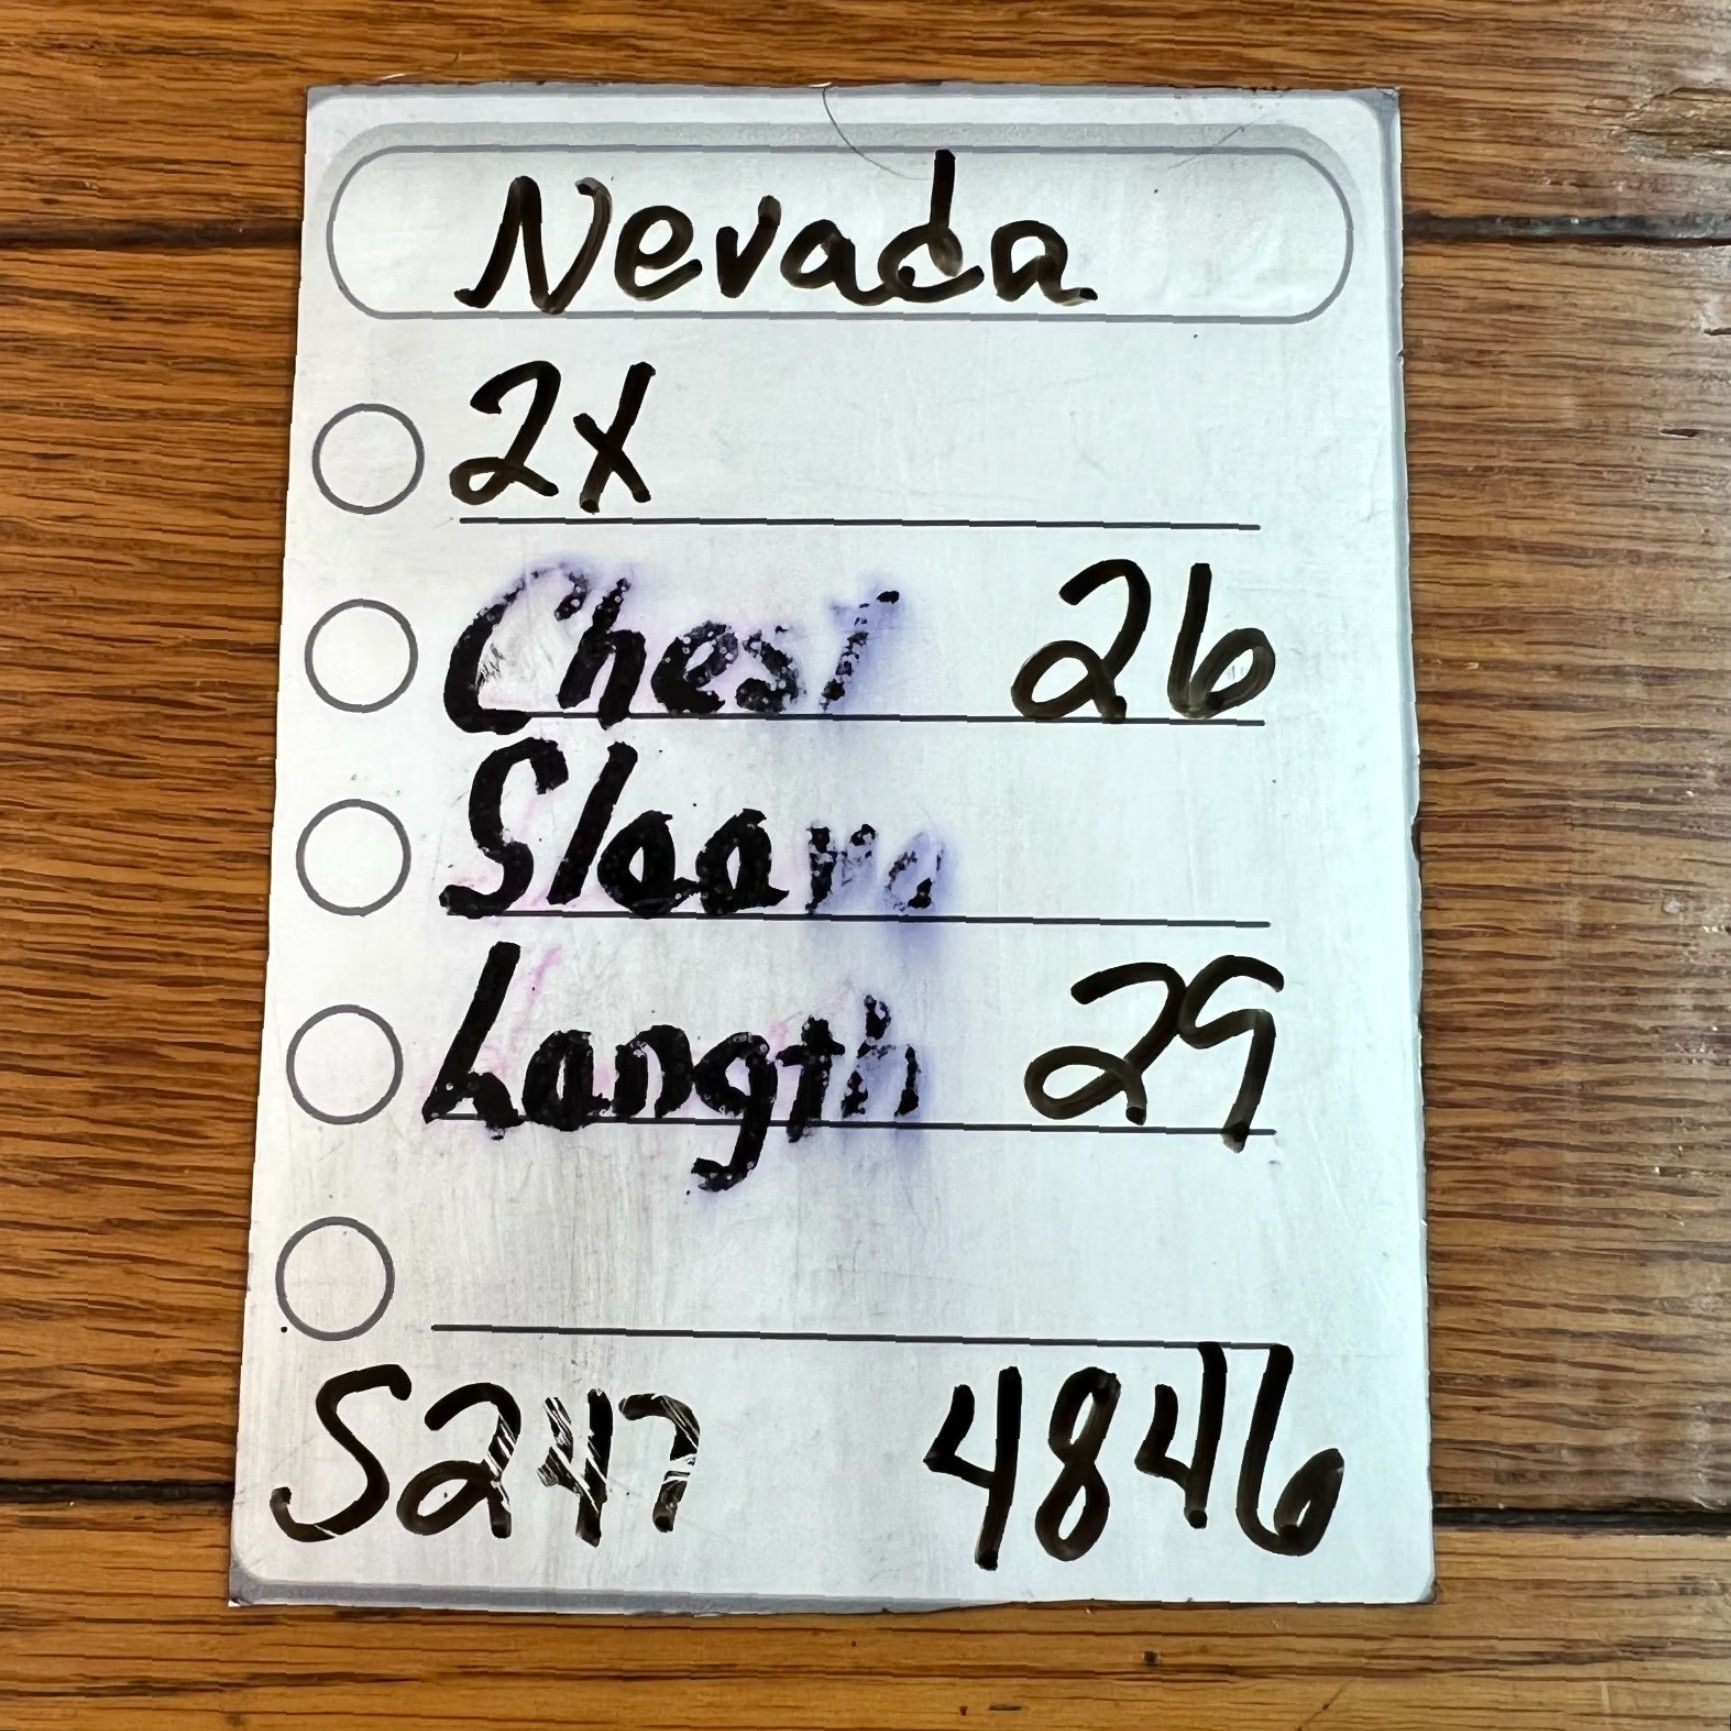 Nevada
2X
Chest 26
Sleeve
Length 29
S247 4846